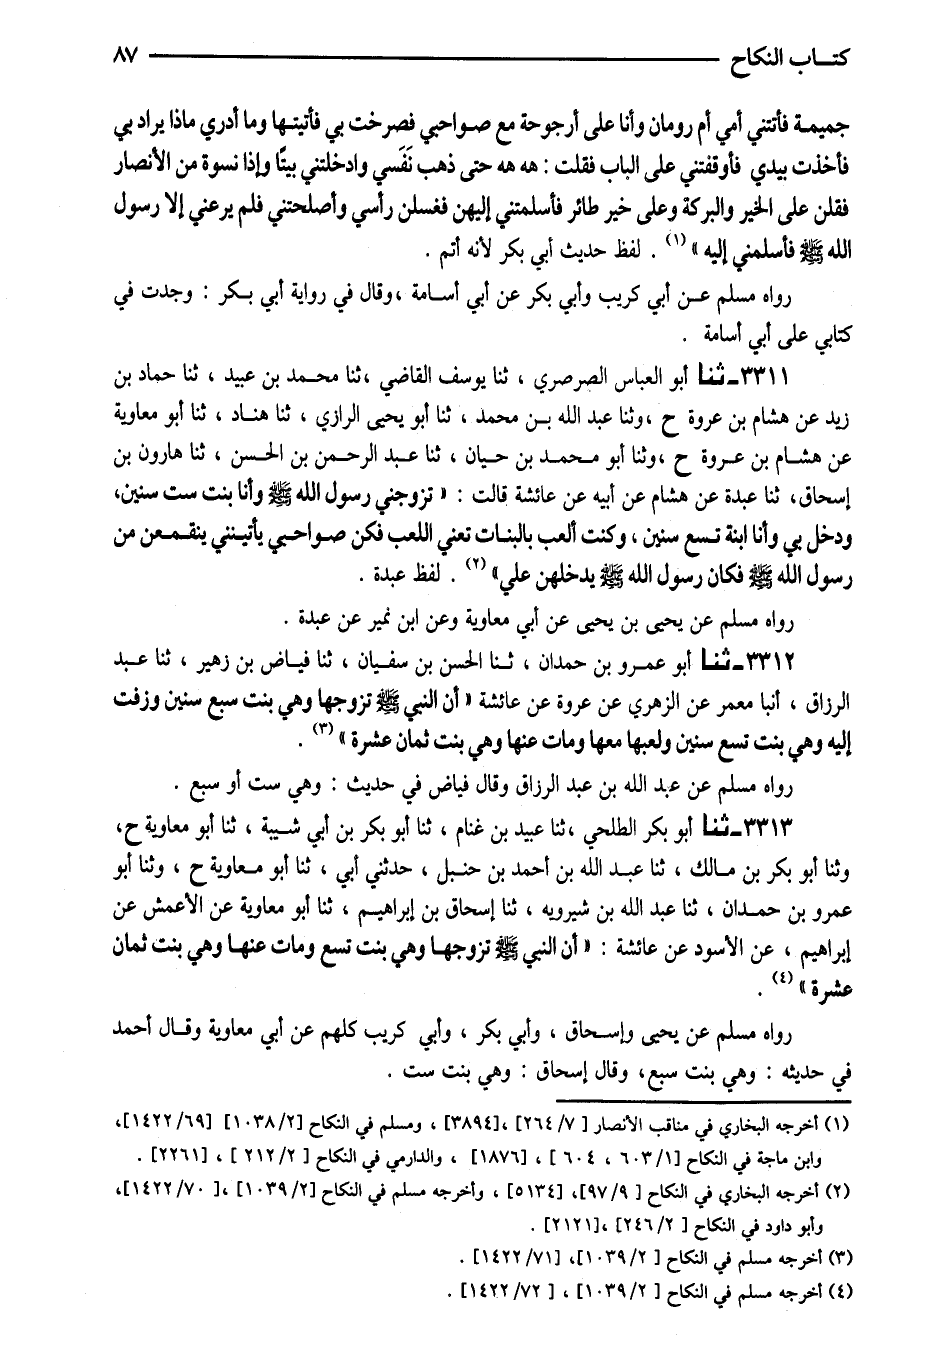 كتاب النكاح ٨٧
جميمة فأتتني أمي أم رومان وأنا على أرجوحة مع صواحبي فصرخت بي فأتيتها وما أدري ماذا يراد بي
فأخذت بيدي فأوقفتني على الباب فقلت : هه هه حتى ذهب نَفَسي وادخلتني بيتًا وإذا نسوة من الأنصار
فقلن على الخير والبركة وعلى خير طائر فأسلمتني إليهن فغسلن رأسي وأصلحتني فلم يرعني إلا رسول
الله ﷺ فأسلمني إليه » (١) . لفظ حديث أبي بكر لأنه أتم .
رواه مسلم عن أبي كريب وأبي بكر عن أبي أسامة ،وقال في رواية أبي بكر : وجدت في
كتابي على أبي أسامة .
٣٣١١ـ ثنا أبو العباس الصرصري ، ثنا يوسف القاضي ،ثنا محمد بن عبيد ، ثنا حماد بن
زيد عن هشام بن عروة ح ،وثنا عبد الله بن محمد ، ثنا أبو يحيى الرازي ، ثنا هناد ، ثنا أبو معاوية
عن هشام بن عروة ح ،وثنا أبو محمد بن حيان ، ثنا عبد الرحمن بن الحسن ، ثنا هارون بن
إسحاق، ثنا عبدة عن هشام عن أبيه عن عائشة قالت : « تزوجني رسول الله ﷺ وأنا بنت ست سنين،
ودخل بي وأنا ابنة تسع سنين ، وكنت ألعب بالبنات تعني اللعب فكن صواحبي يأتينني ينقمعن من
رسول الله ﷺ فكان رسول الله ﷺ يدخلهن علي» (٢) . لفظ عبدة .
رواه مسلم عن يحيى بن يحيى عن أبي معاوية وعن ابن نمير عن عبدة .
٣٣١٢ـ ثنا أبو عمرو بن حمدان ، ثنا الحسن بن سفيان ، ثنا فياض بن زهير ، ثنا عبد
الرزاق ، أنبا معمر عن الزهري عن عروة عن عائشة « أن النبي ﷺ تزوجها وهي بنت سبع سنين وزفت
إليه وهي بنت تسع سنين ولعبها معها ومات عنها وهي بنت ثمان عشرة » (٣) .
رواه مسلم عن عبد الله بن عبد الرزاق وقال فياض في حديث : وهي ست أو سبع .
٣٣١٣ـ ثنا أبو بكر الطلحي ،ثنا عبيد بن غنام ، ثنا أبو بكر بن أبي شيبة ، ثنا أبو معاوية ح،
وثنا أبو بكر بن مالك ، ثنا عبد الله بن أحمد بن حنبل ، حدثني أبي ، ثنا أبو معاوية ح ، وثنا أبو
عمرو بن حمدان ، ثنا عبد الله بن شيرويه ، ثنا إسحاق بن إبراهيم ، ثنا أبو معاوية عن الأعمش عن
إبراهيم ، عن الأسود عن عائشة : « أن النبي ﷺ تزوجها وهي بنت تسع ومات عنها وهي بنت ثمان
عشرة » (٤) .
رواه مسلم عن يحيى وإسحاق ، وأبي بكر ، وأبي كريب كلهم عن أبي معاوية وقال أحمد
في حديثه : وهي بنت سبع، وقال إسحاق : وهي بنت ست .
(١) أخرجه البخاري في مناقب الأنصار [ ٧/ ٢٦٤] ،[٣٨٩٤] ، ومسلم في النكاح [٢/ ١٠٣٨] [٦٩/ ١٤٢٢]،
وابن ماجة في النكاح [١/ ٦٠٣ ، ٦٠٤ ] ، [١٨٧٦] ، والدارمي في النكاح [ ٢/ ٢١٢ ] ، [٢٢٦١] .
(٢) أخرجه البخاري في النكاح [ ٩/ ٩٧]، [٥١٣٤] ، وأخرجه مسلم في النكاح [٢/ ١٠٣٩] ،[ ٧٠/ ١٤٢٢]،
وأبو داود في النكاح [ ٢/ ٢٤٦] ،[٢١٢١] .
(٣) أخرجه مسلم في النكاح [ ٢/ ١٠٣٩]، [٧١/ ١٤٢٢] .
(٤) أخرجه مسلم في النكاح [ ٢/ ١٠٣٩] ، [ ٧٢/ ١٤٢٢] .